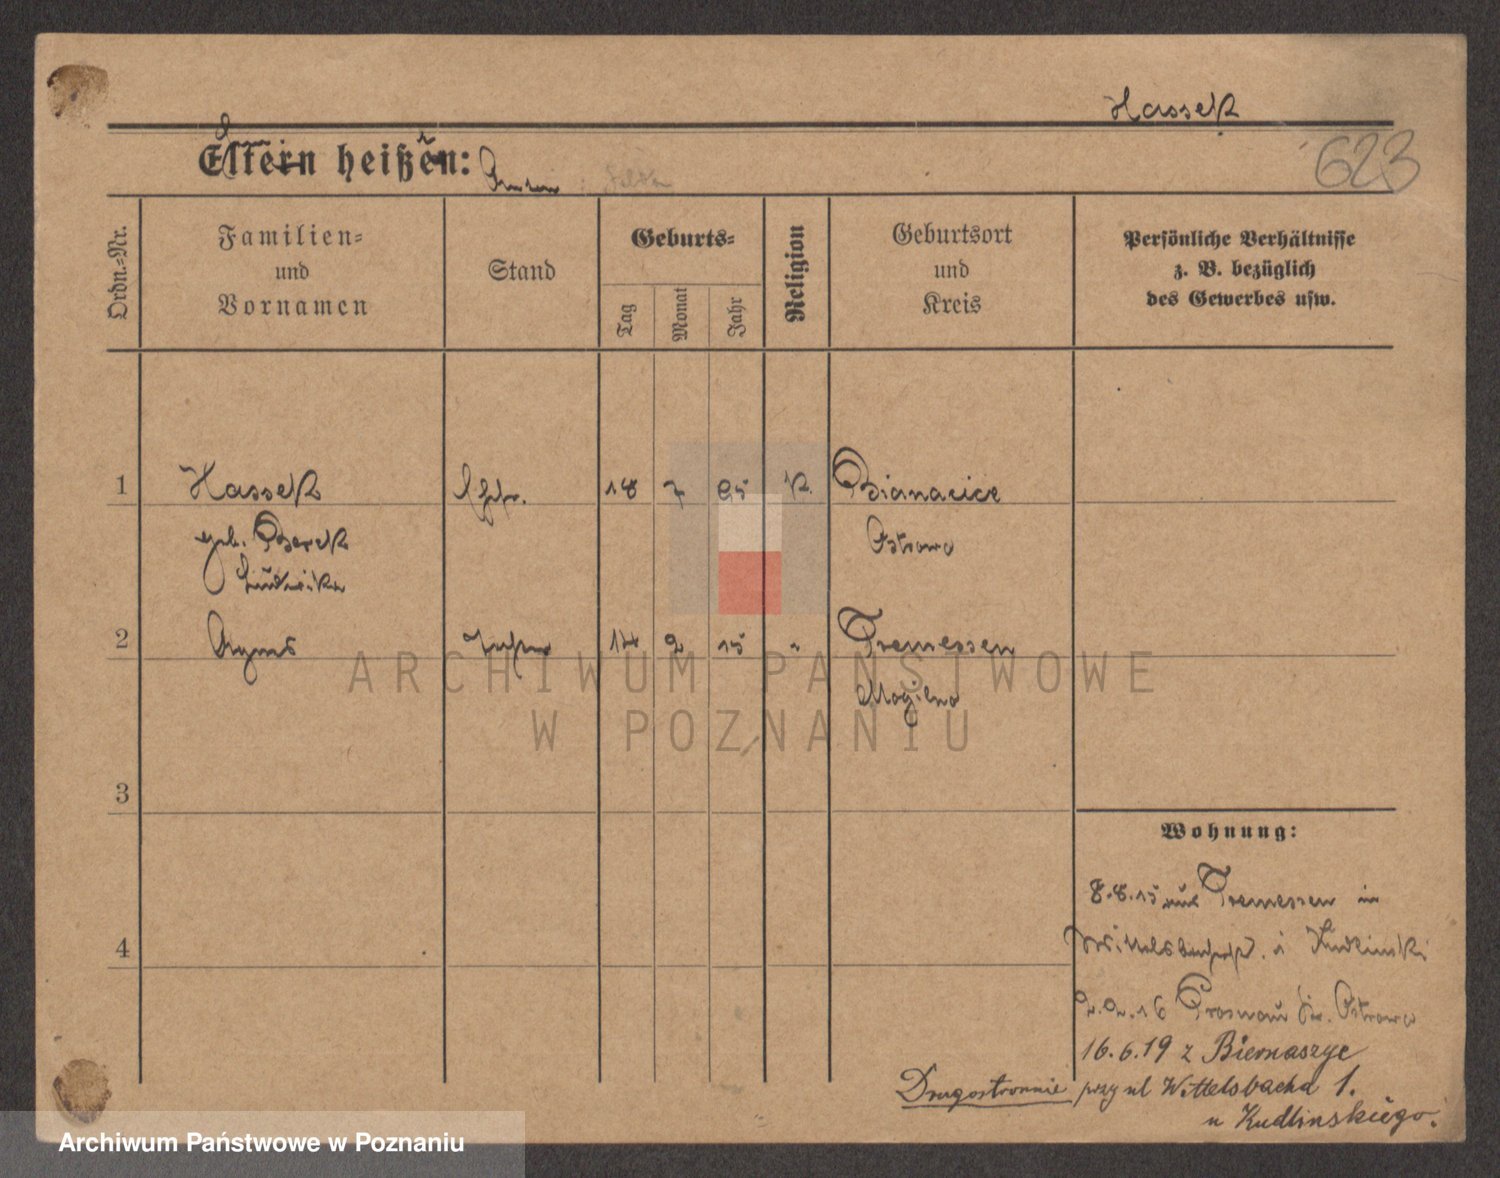 Hassek
623
Eltern heißen:
Ordn.-Nr.
Familien-
und
Vornamen
Stand
Geburts-
Tag
Monat
Jahr
Religion
Geburtsort
und
Kreis
Persönliche Verhältnisse
z. B. bezüglich
des Gewerbes usw.
1 Hassek 18 7 K.
geb. Ostrowo
Ludwika
2 Agnes 14 2 15 " Tremessen
Mogilno
3
4
Wohnung:
8.8.15 aus Tremessen in
Kudlinski
2.2.16 Ostrowo
16.6.19 z Biernaszyc
Drugostronnie przy ul Wittelsbacha 1.
u Kudlinskiego.
ARCHIWUM PAŃSTWOWE
W POZNANIU
Archiwum Państwowe w Poznaniu